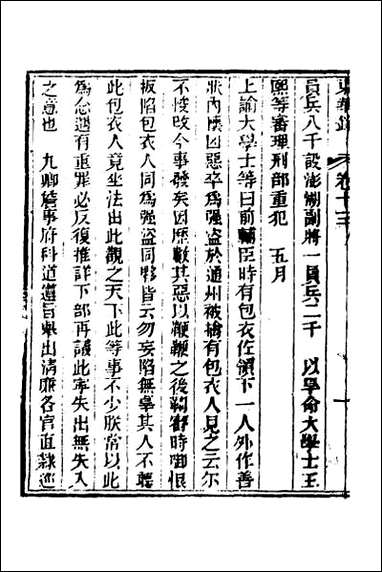 東華錄 卷十三 一
員兵八千設澎湖副將一員兵二千 以學命大學士王
熙等審理刑部重犯 五月
上諭大學士等曰前輔臣時有包衣佐領下一人外作善
狀內懷凶惡卒爲強盜於通州被擒有包衣人見之云尔
不悛改今事發矣因歷數其惡以鞭鞭之後鞫審時啣恨
扳陷包衣人同爲強盜同夥皆云勿妄陷無辜其人不聽
此包衣人竟坐法出此觀之天下此等事不少朕常以此
爲念遇有重罪必反復推詳下部再議此寧失出無失入
之意也 九卿詹事府科道遵旨舉出清廉各官直隸巡